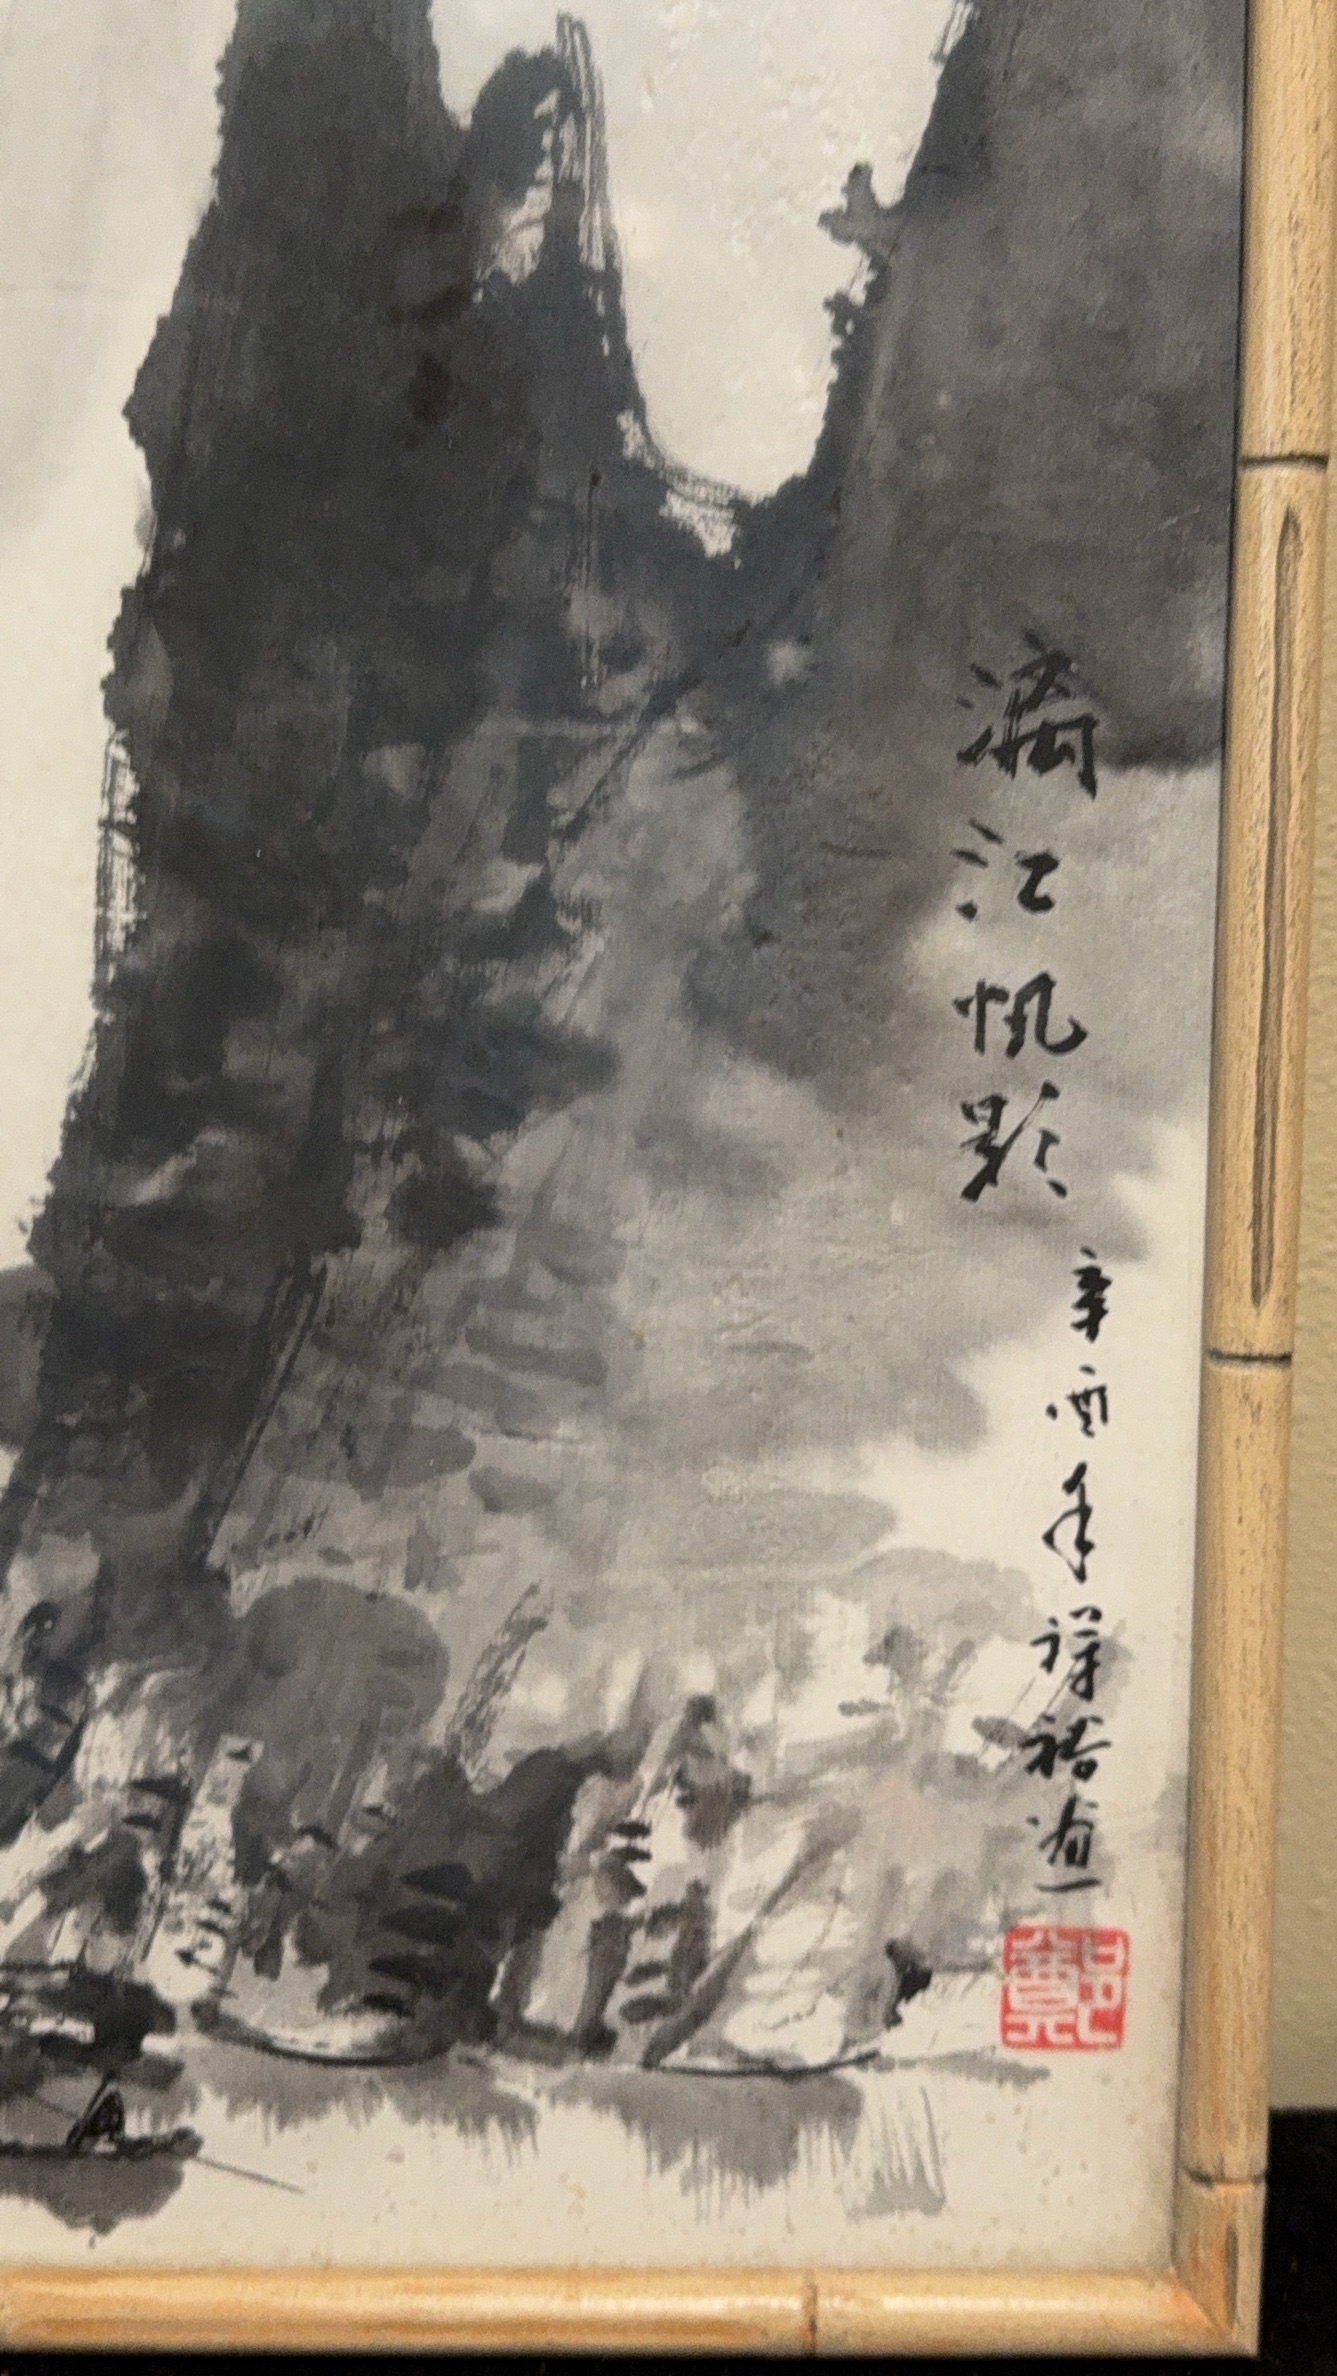 漓江帆影
辛酉年祥裕画
鄭